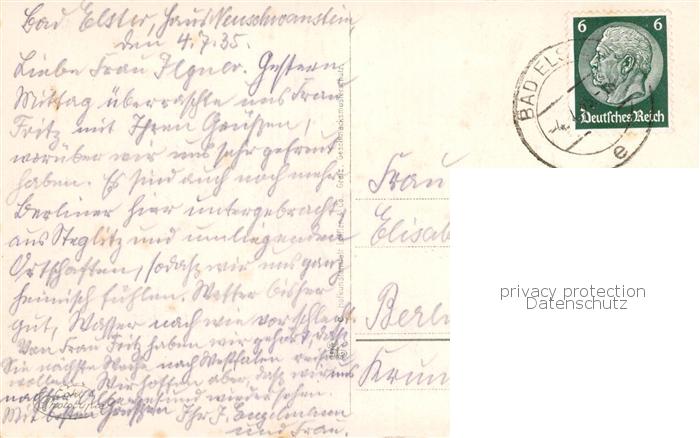 Bad Elster, Haus Neuschwanstein,
den 4.7.35.
Liebe Frau Ilgner. Gestern
Mittag überraschte uns Frau
Fritz mit Ihren Grüßen,
worüber wir uns sehr gefreut
haben. Es sind auch noch mehr
Berliner hier untergebracht,
aus Steglitz und umliegenden
Ortschaften, sodasz wir uns ganz
heimisch fühlen. Wetter bisher
gut, Wasser nach wie vor schlecht.
Von Frau Fritz haben wir gehört, dasz
Sie nächste Woche nach Westfalen reisen
wollen. Wir hoffen aber, dasz wir uns
gesund wieder sehen.
Mit besten Grüssen Ihr J. Engelmann
und Frau.
6 6
Deutsches Reich
BAD ELS
e
Frau
Elisab
Berl
Krum
privacy protection
Datenschutz